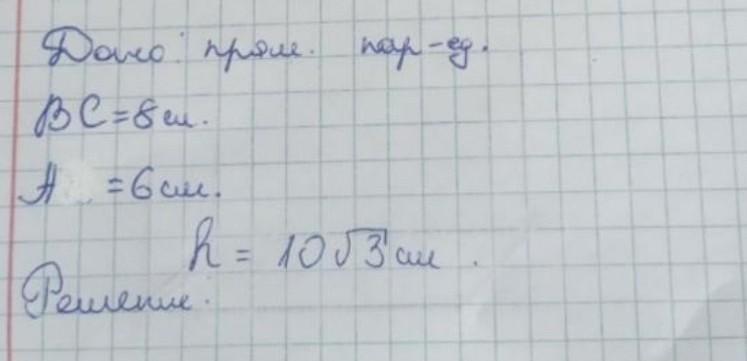 Дано: прям. пар-ед.
BC = 8 см.
A = 6 см.
h = 10√3 см.
Решение.